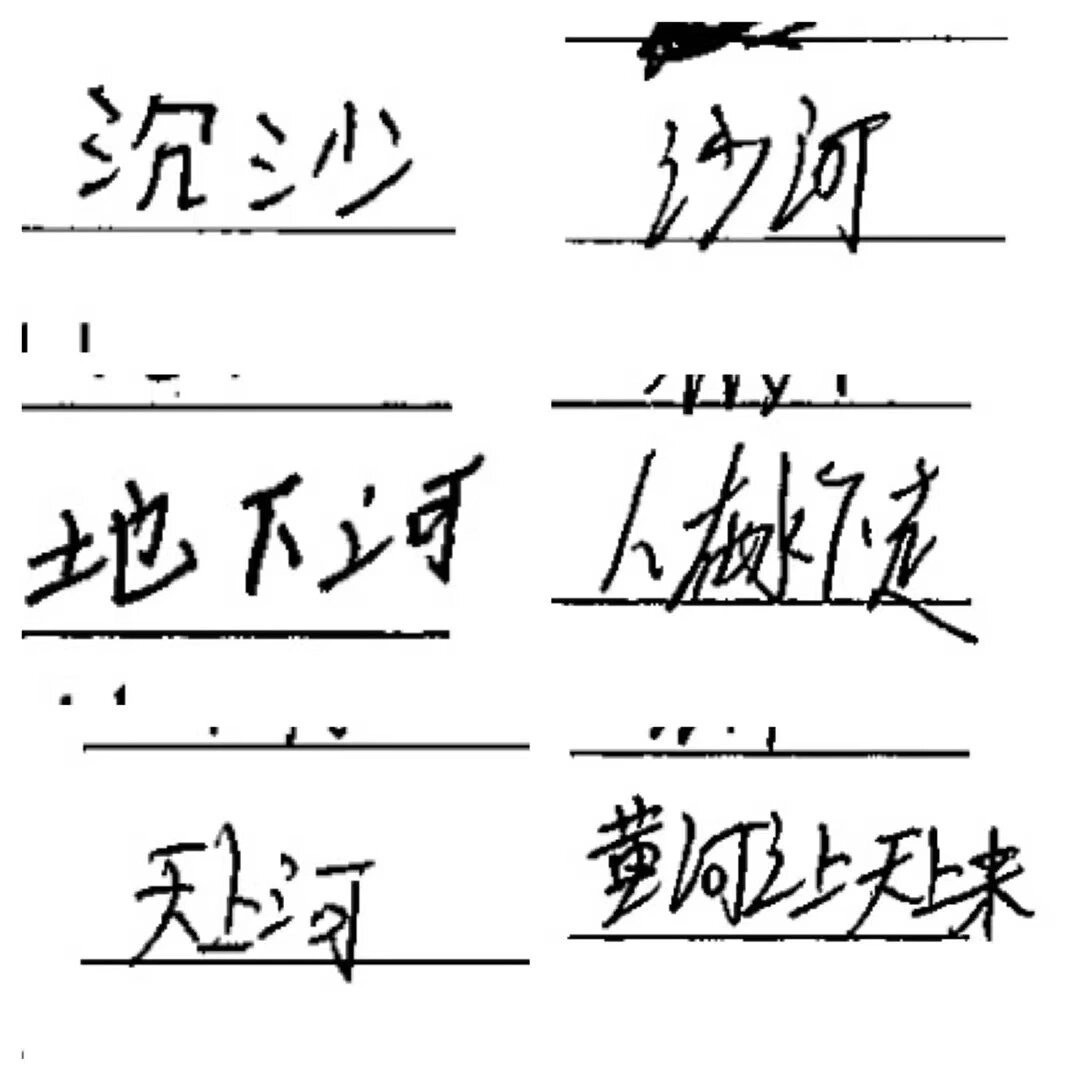 沉沙
沙河
地下河
人水下走
天上河
黄河之上天上来